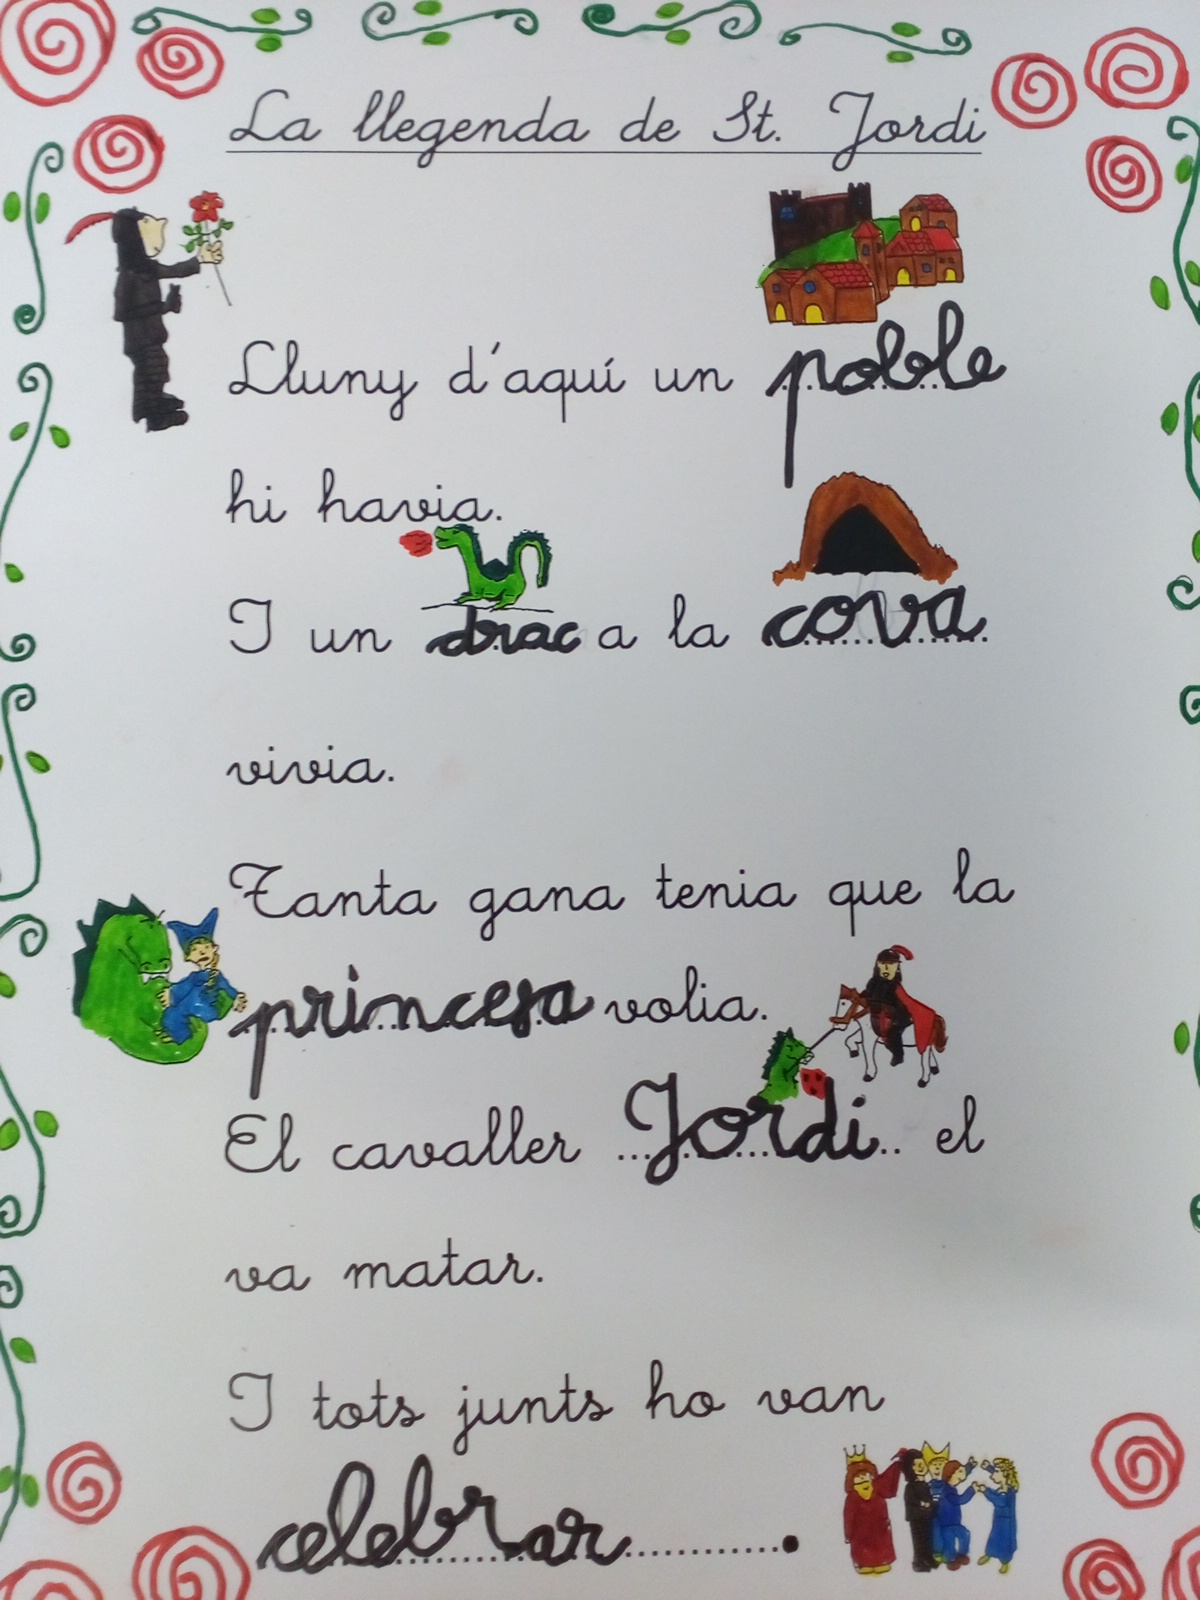 La llegenda de St. Jordi
Lluny d'aquí un poble
hi havia.
I un drac a la cova
vivia.
Tanta gana tenia que la
princesa volia.
El cavaller Jordi el
va matar.
I tots junts ho van
celebrar.